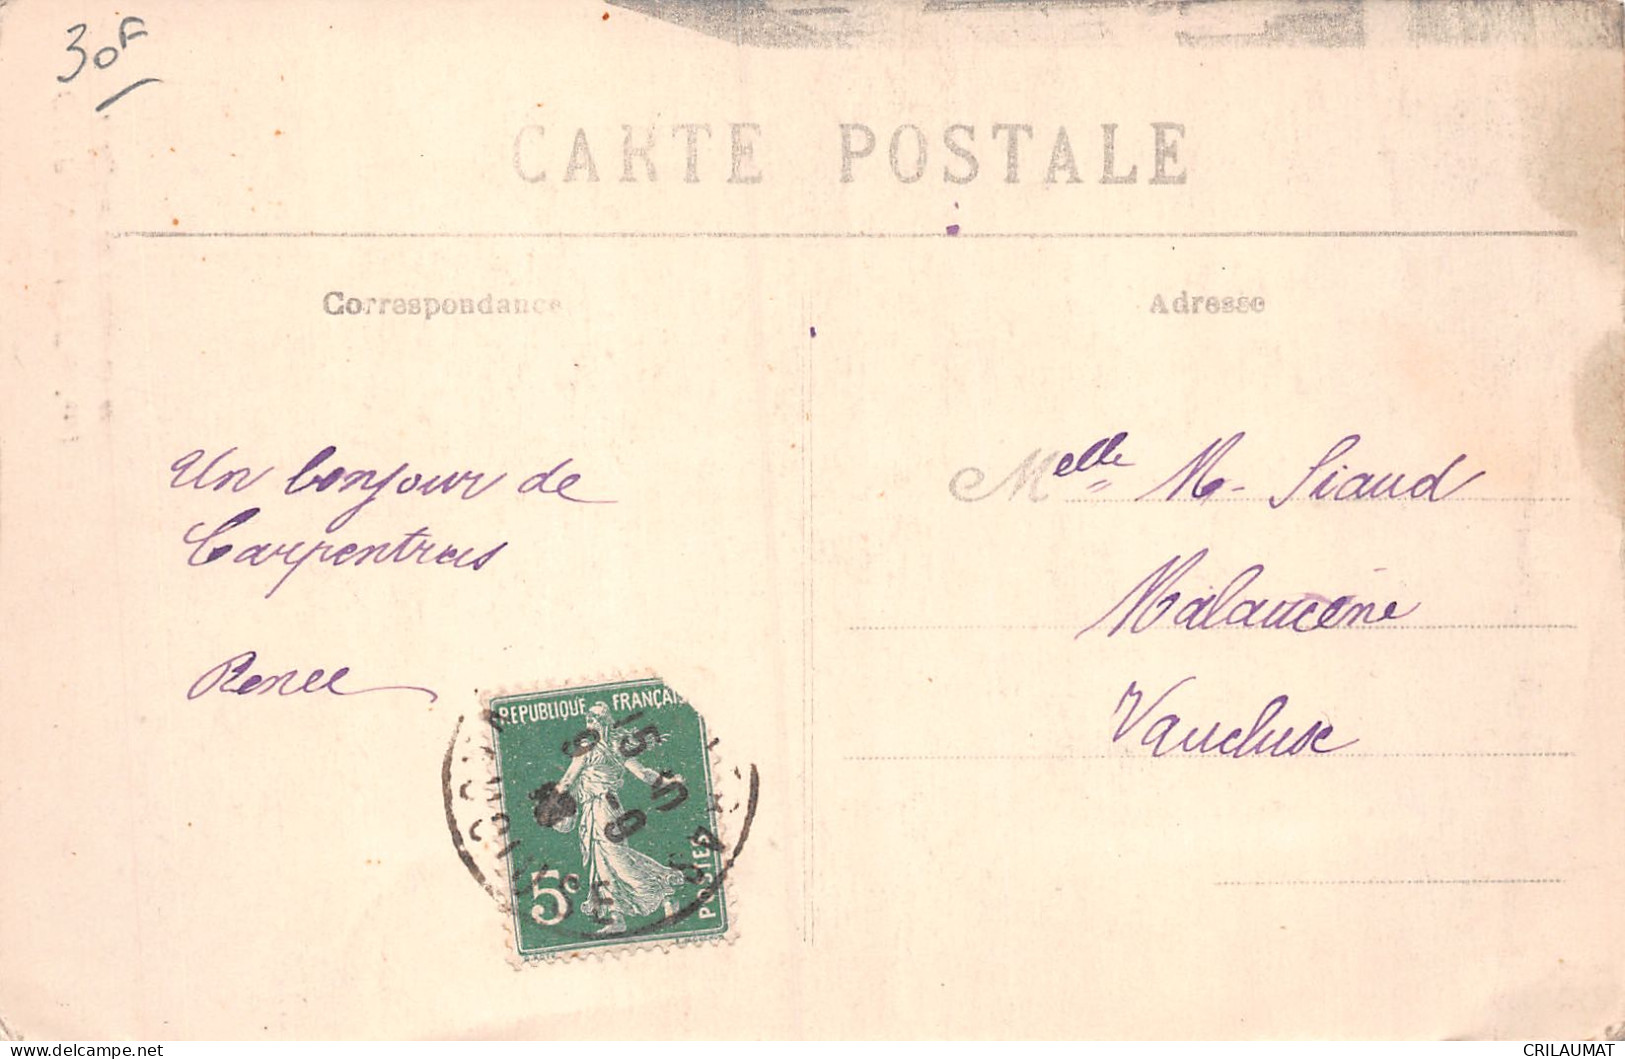 30F
CARTE POSTALE
Correspondance
Adresse
Un bonjour de
Carpentras
Renée
Melle M. Siaud
Malaucène
Vaucluse
REPUBLIQUE FRANÇAISE
5c
POSTES
VAUCLUSE
delcampe.net
CRILAUMAT